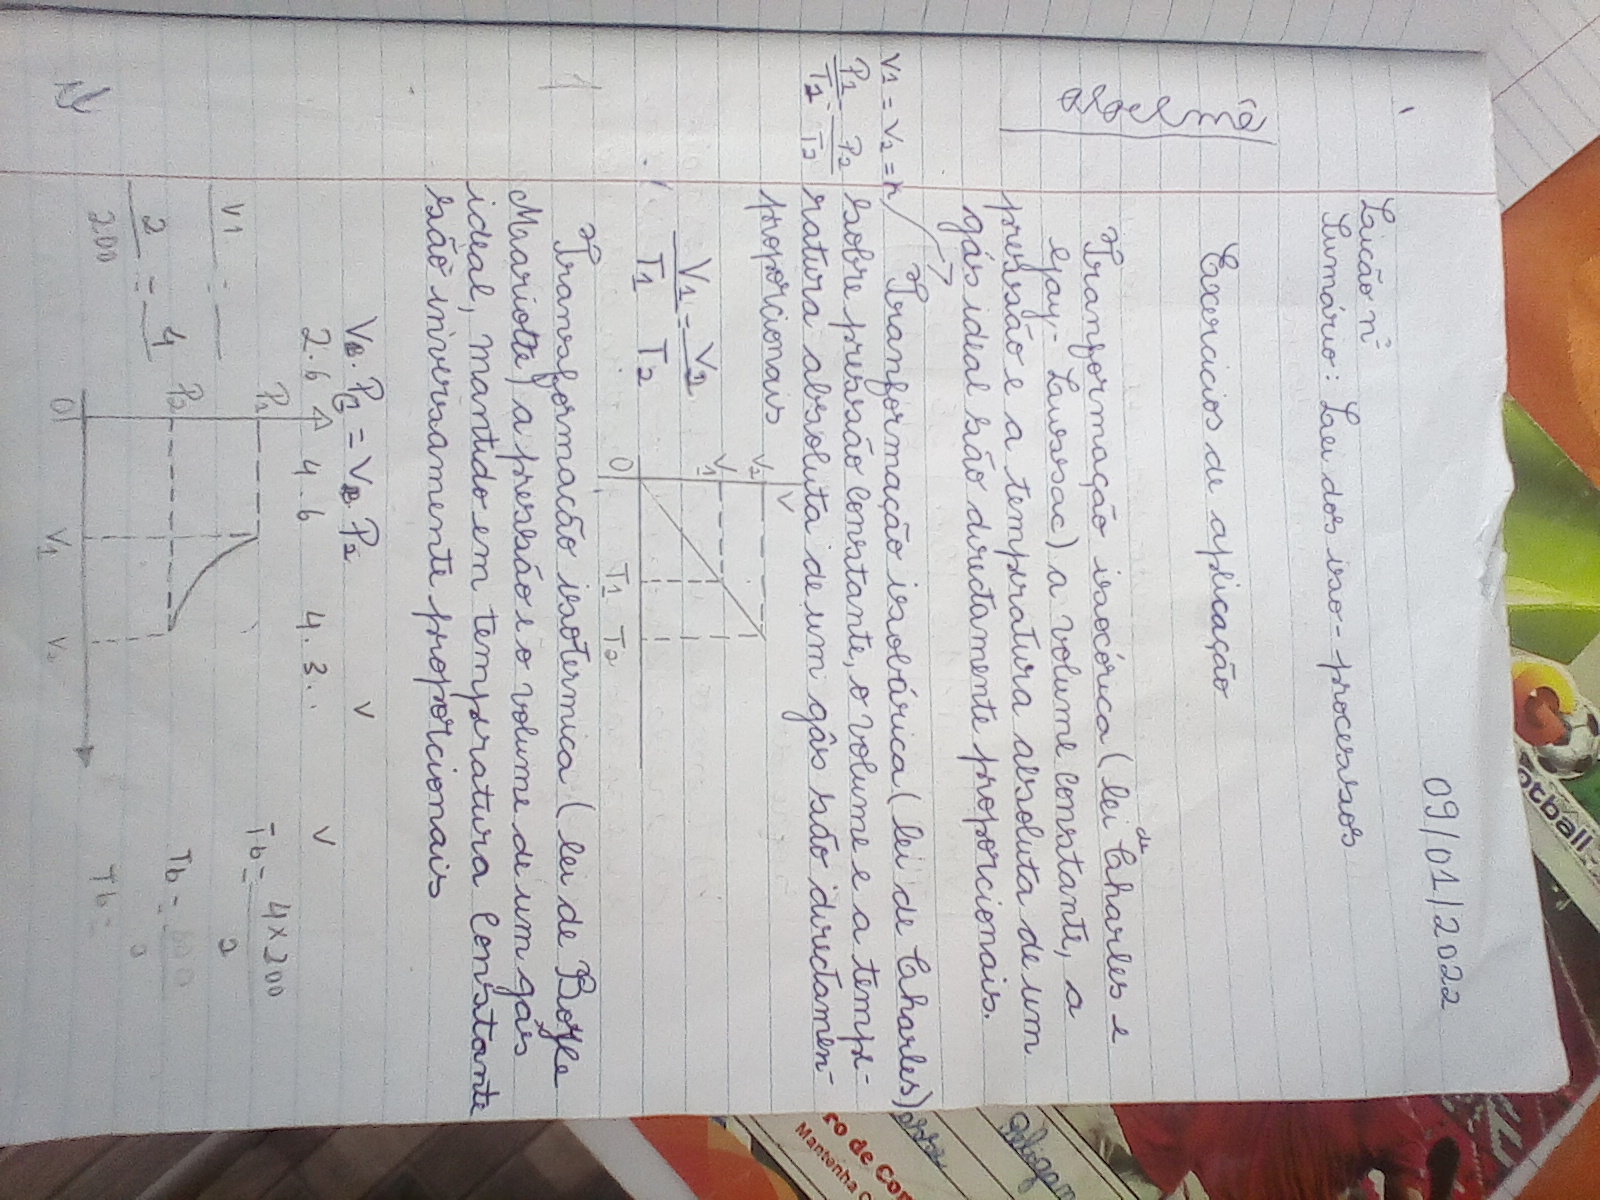 09/01/2022
Licão nº
Sumário: Leei dos iso-processos
Exercicios de aplicação
Tranformação isocórica (lei de Charles e
Gay- Lussac) a volume constante, a
pressão e a tempratura absoluta de um
gás ideal são directamente proporcionais.
V1 = V2 = k
Tranformação isobárica (lei de Charles)
P1 = P2
T1 T2
sobre pressão constante, o volume e a temp-
ratura absoluta de um gás são directamen-
proporcionais
V1 = V2
T1 T2
V
V2
V1
0 T1 T2
Transformação isotermica (lei de Boyle
Mariotte) a pressão e o volume de um gás
ideal, mantido em tempratura constante
são inversamente proporcionais
V1 . P1 = V2 . P2 V
2.6 4.6 4.3.. V
P1
P2
0 V1 V2
V1
2 = 4
200
Tb = 4x200
2
Tb =
Tb =
otball
ro de Com
Mantenha